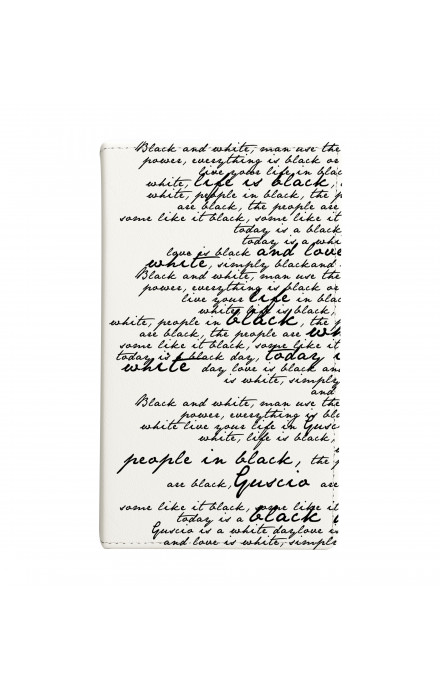 Black and white, man use the
power, everything is black or
live your life in blac
white, life is black,
white, people in black, the p
are black, the people are
some like it black, some like it
today is a black
today is a whi
love is black and love
white, simply black and
Black and white, man use the
power, everything is black or
live your life in blac
white life is black,
white, people in black, the
are black, the people are wh
some like it black, some like it
today is a black day, today i
white day love is black an
is white, simply
and
Black and white, man use the
power, everything is blac
white live your life in Gusc
white, life is black,
people in black, the p
are black, Guscio are
some like it black, some like it
today is a black
Guscio is a white daylove is
and love is white, simple